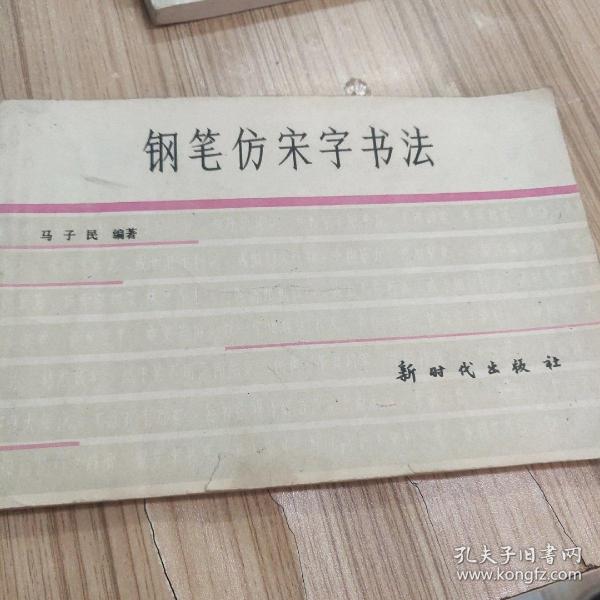 钢笔仿宋字书法
马子民 编著
新时代出版社
孔夫子旧书网
www.kongfz.com